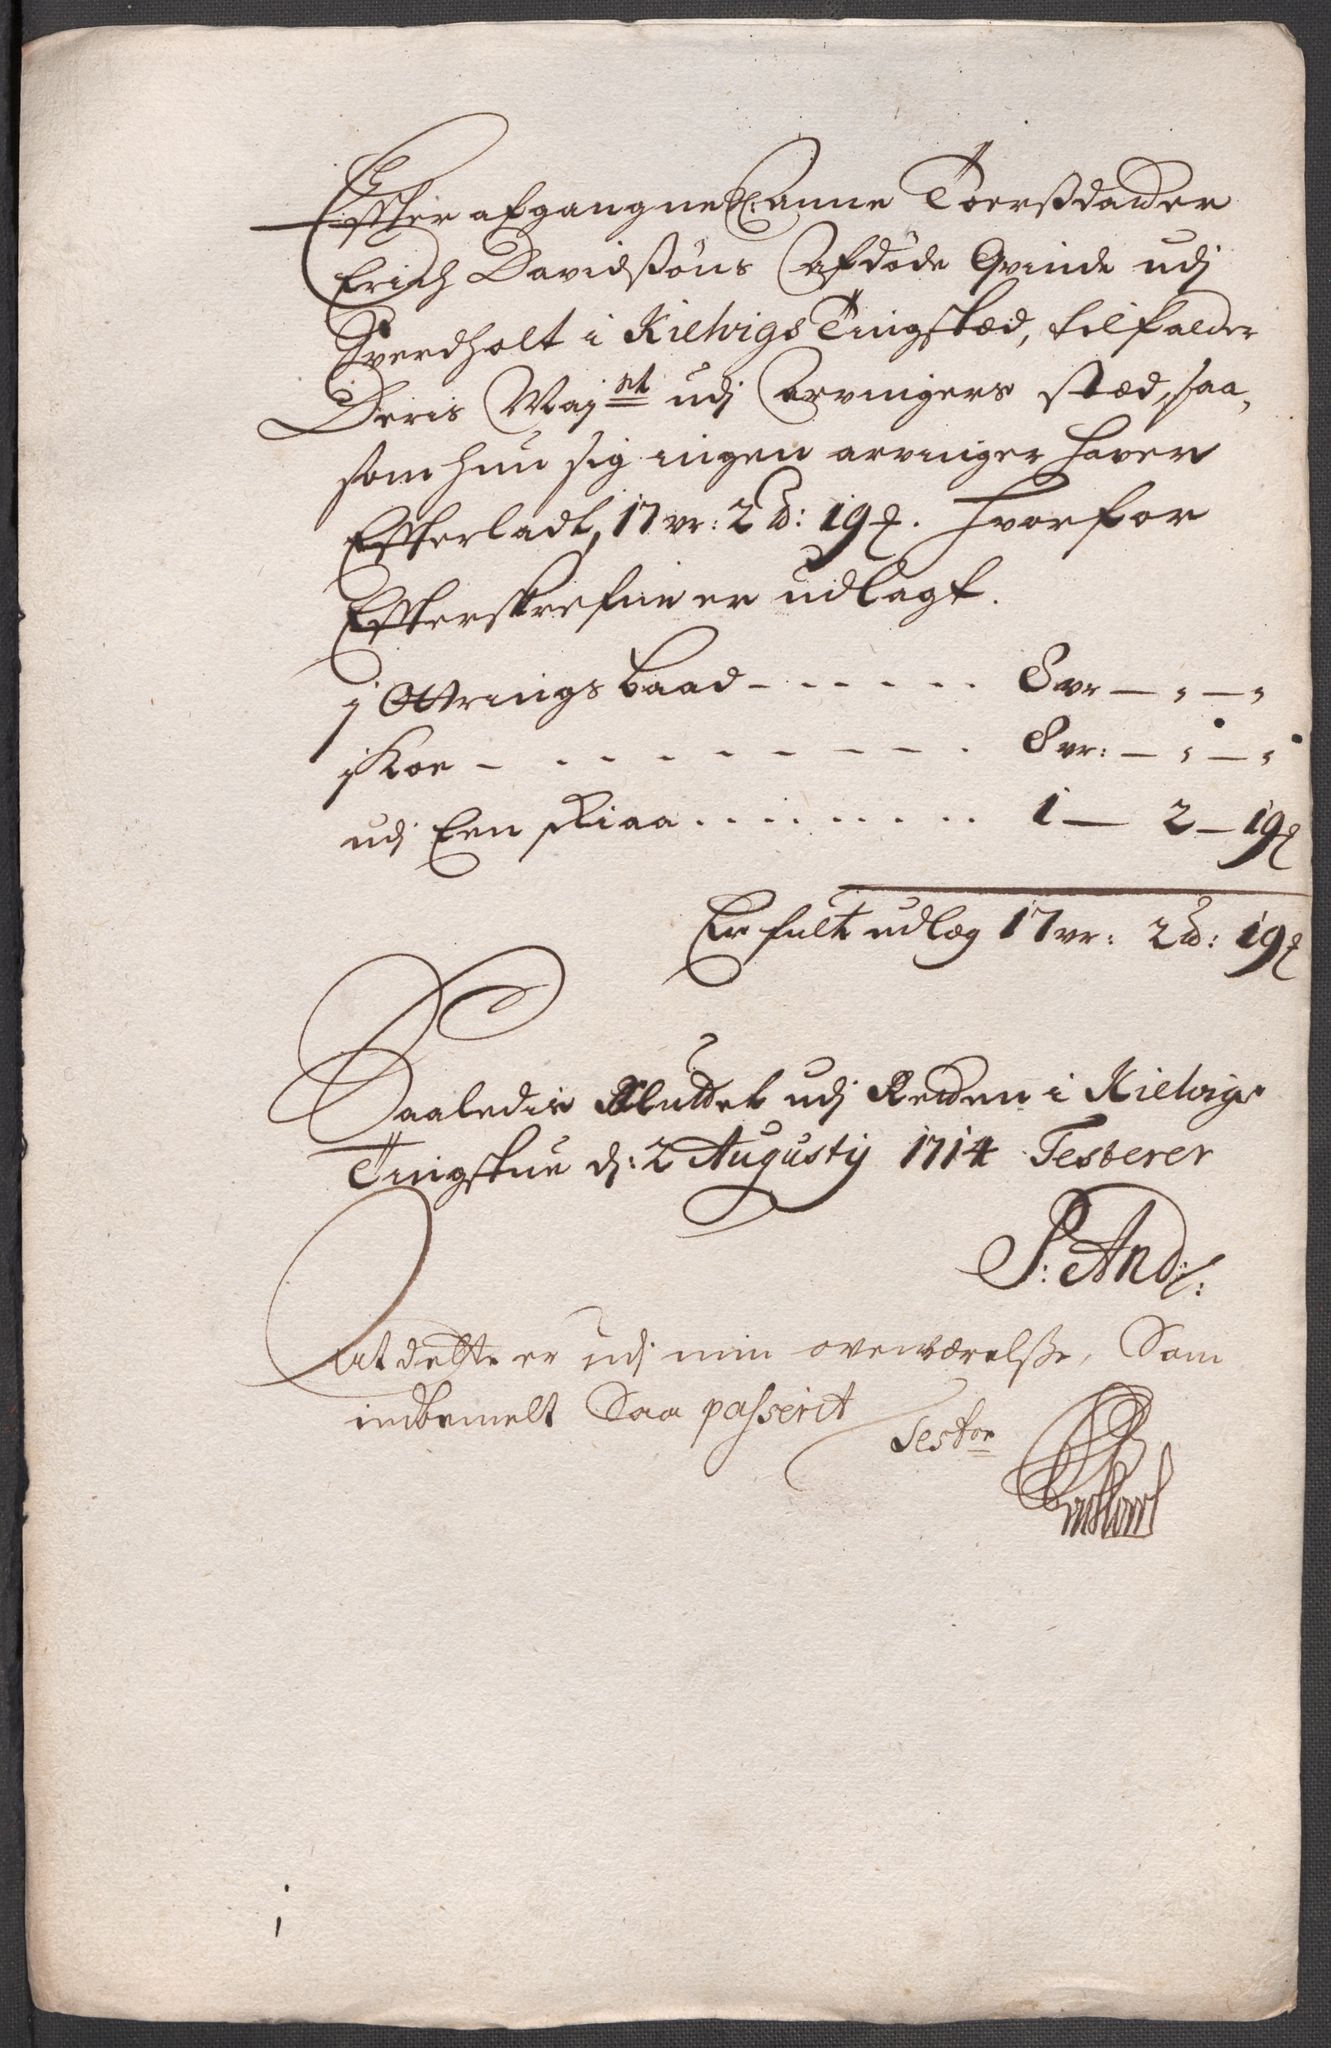 Effter afgangne Anne Toersdatter
Erich Davidsøns Afdøde Qvinde udj
Sverdholt i Kielvigs Tingsted, tilfalder
Deris Maj:st udj Arvingers stæd, saa,
som hun sig ingen arvinger haver
Efterladt, 17 vr: 2 ℔: 19 β. hvorfor
Efterskrefne er udlagt.
1 Ottrings baad - - - - - - 8 vr — " — "
1 Koe - - - - - - - - - 8 vr: — " — "
udj Een Kiaa . . . . . . . . . 1 — 2 — 19 β
Er fult udlæg 17 vr: 2 ℔: 19 β
Saaledis Sluttet udj Retten i Kielvigs
Tingstue d: 2 Augustij 1714 Testerer
P: And:s:
At dette er udj min overværelsse, Som
indbemelt Saa passerit
Testor